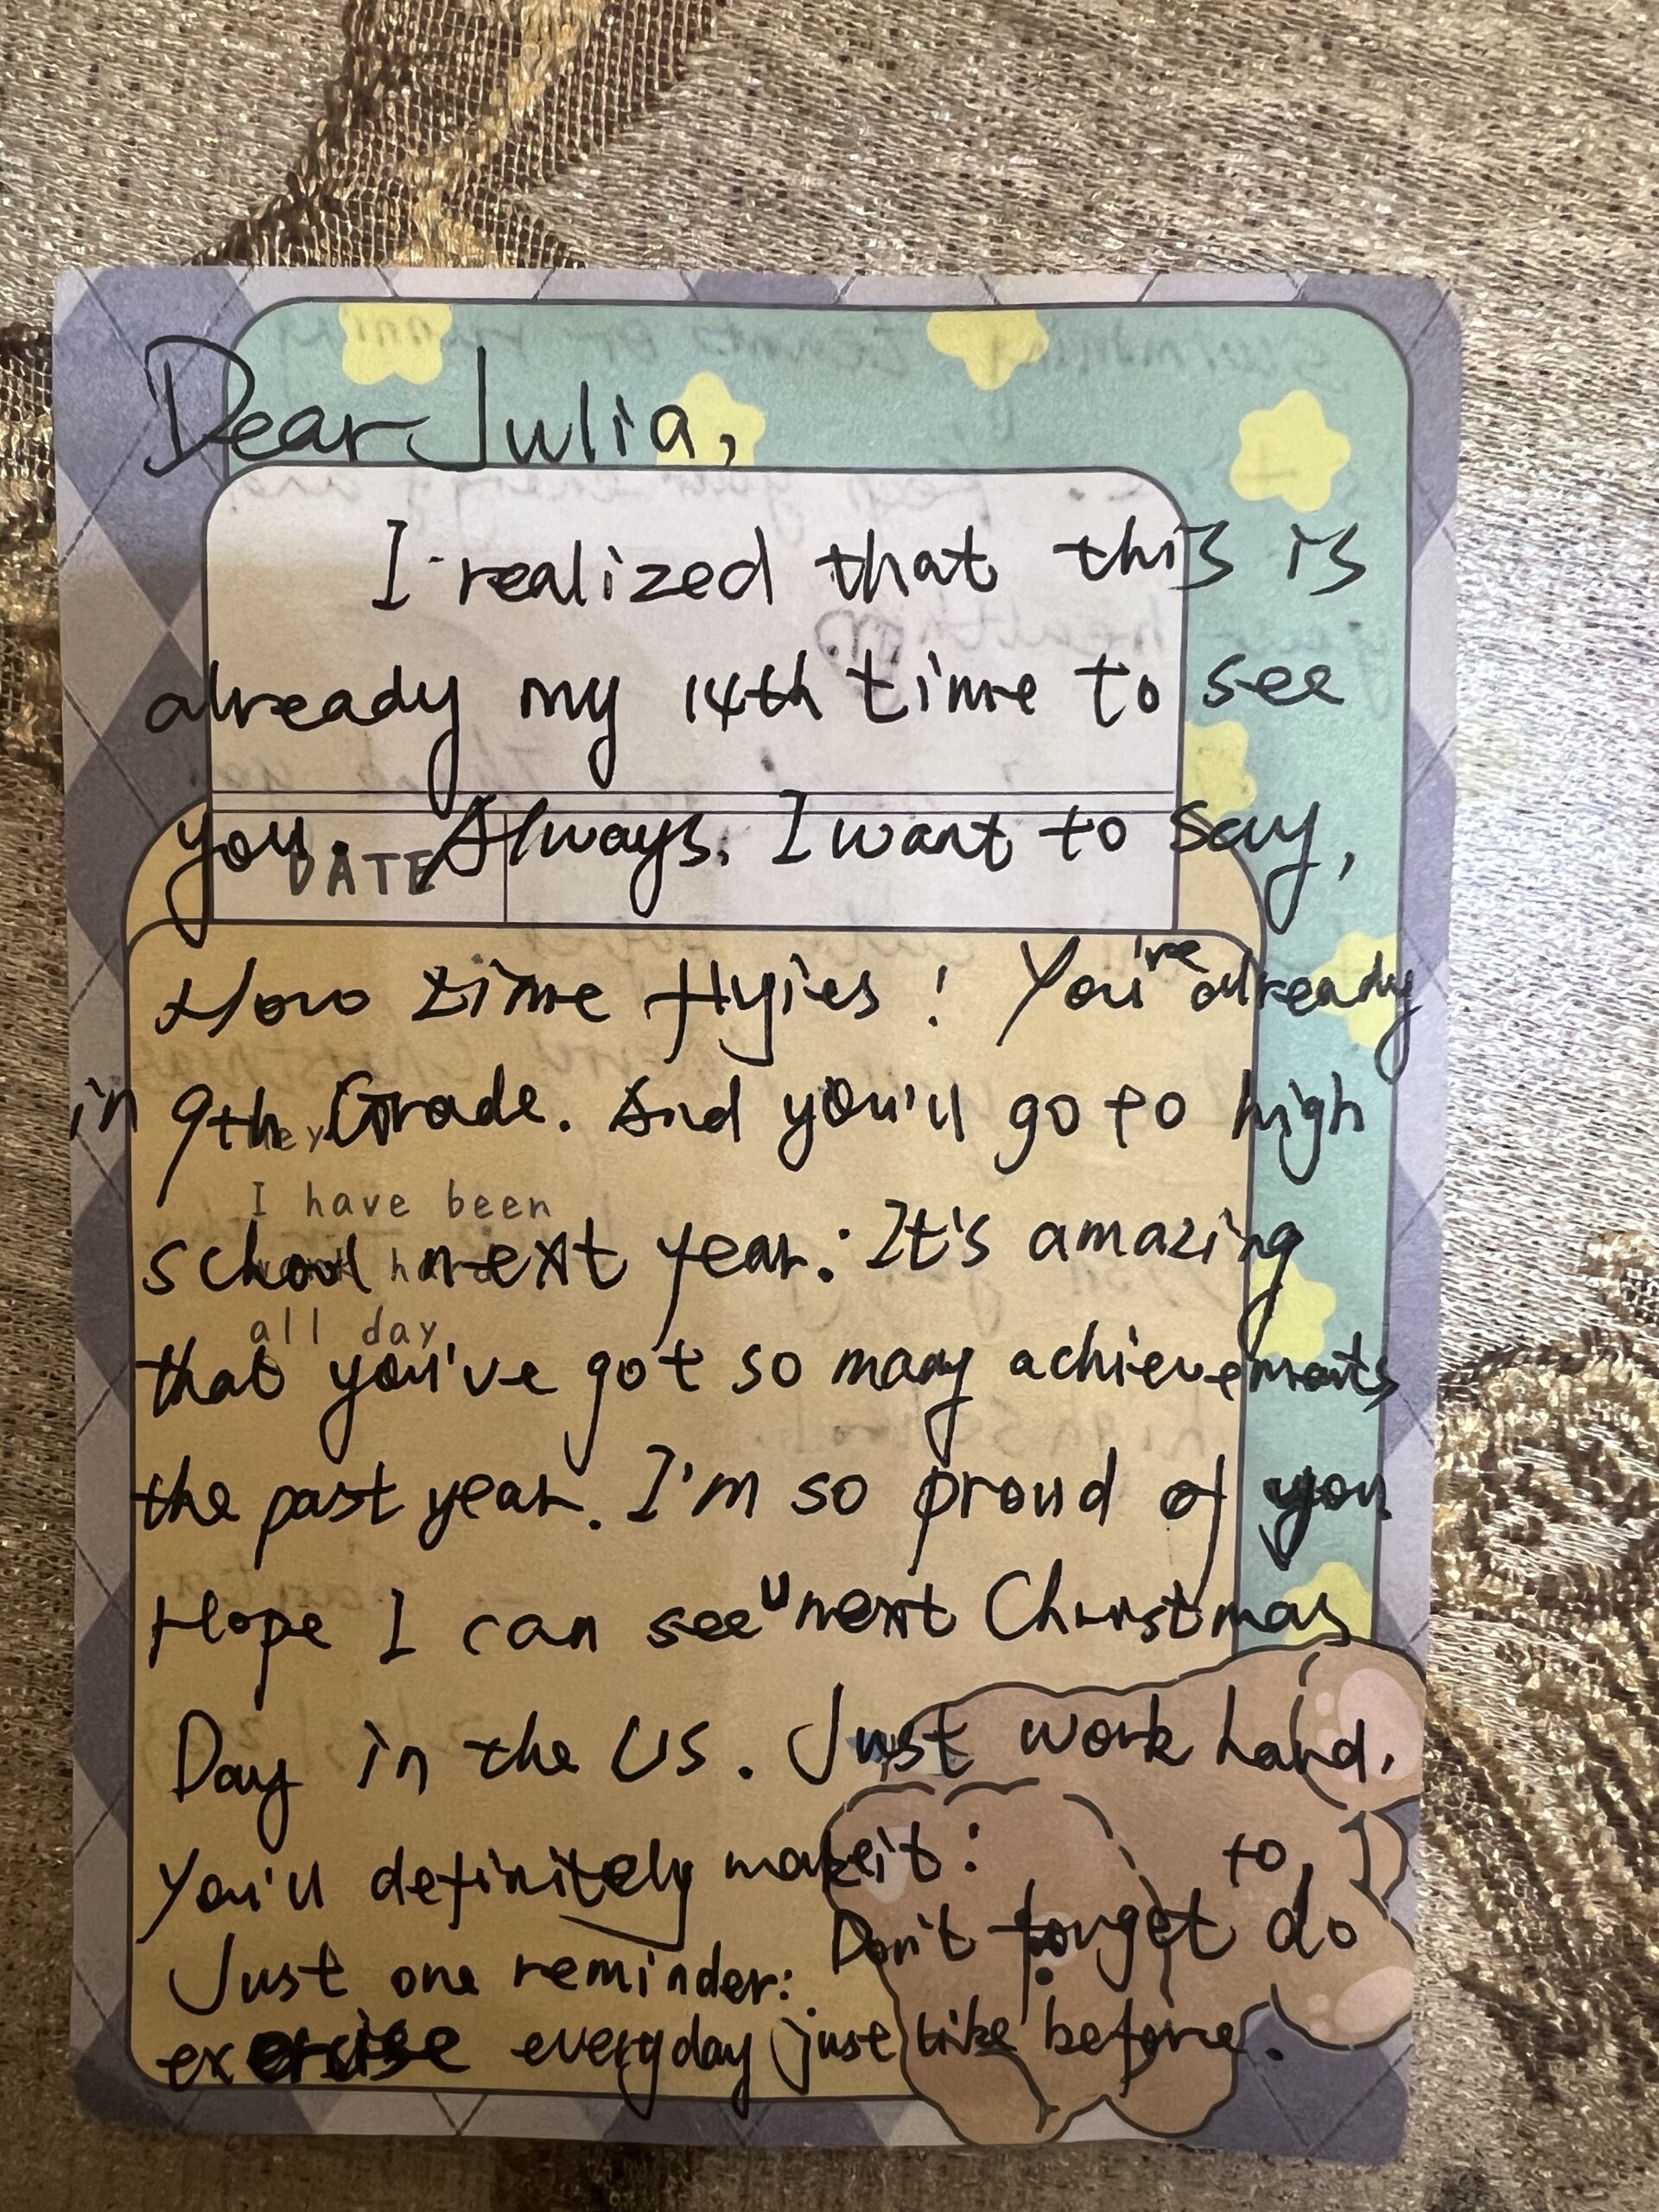 Dear Julia,
I realized that this is
already my 14th time to see
you. Always, I want to say,
DATE
How time flyies! You're already
in 9th Grade. And you'll go to high
I have been
school next year. It's amazing
all day
that you've got so many achievements
the past year. I'm so proud of you
Hope I can see u next Christmas
Day in the US. Just work hard.
You'll definitely make it!
Just one reminder: Don't forget to do
exercise everyday just like before.